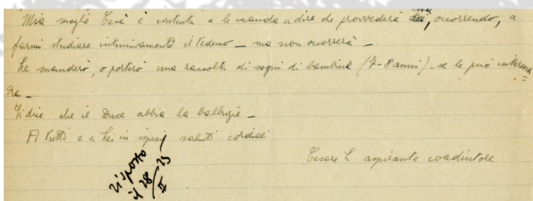 Mia moglie Cesì è contenta e le manda a dire che provvederà, occorrendo, a
farmi studiare intensivamente il tedesco — ma non occorrerà —
Le manderò, o porterò una raccolta di sogni di bambina (7-8 anni) - se le può interessa=
re —
Si dice che il Duce abbia la balbuzie —
A tutti e a Lei in ispecie saluti cordiali
Cesare L aspirante coadiutore
risposto
il 28/II 33